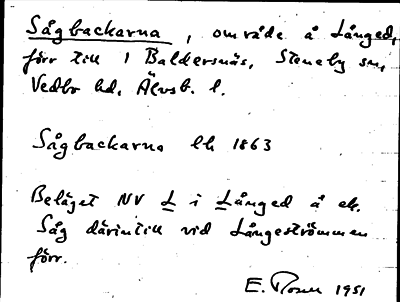 Sågbackarna, område å Långed,
förr till 1 Baldersnäs, Steneby sn,
Vedbo hd, Älvsb. l.
Sågbackarna lh 1863
Beläget NV L i Långed å ek.
Såg därintill vid Långeströmmen
förr.
E. Rosen 1951